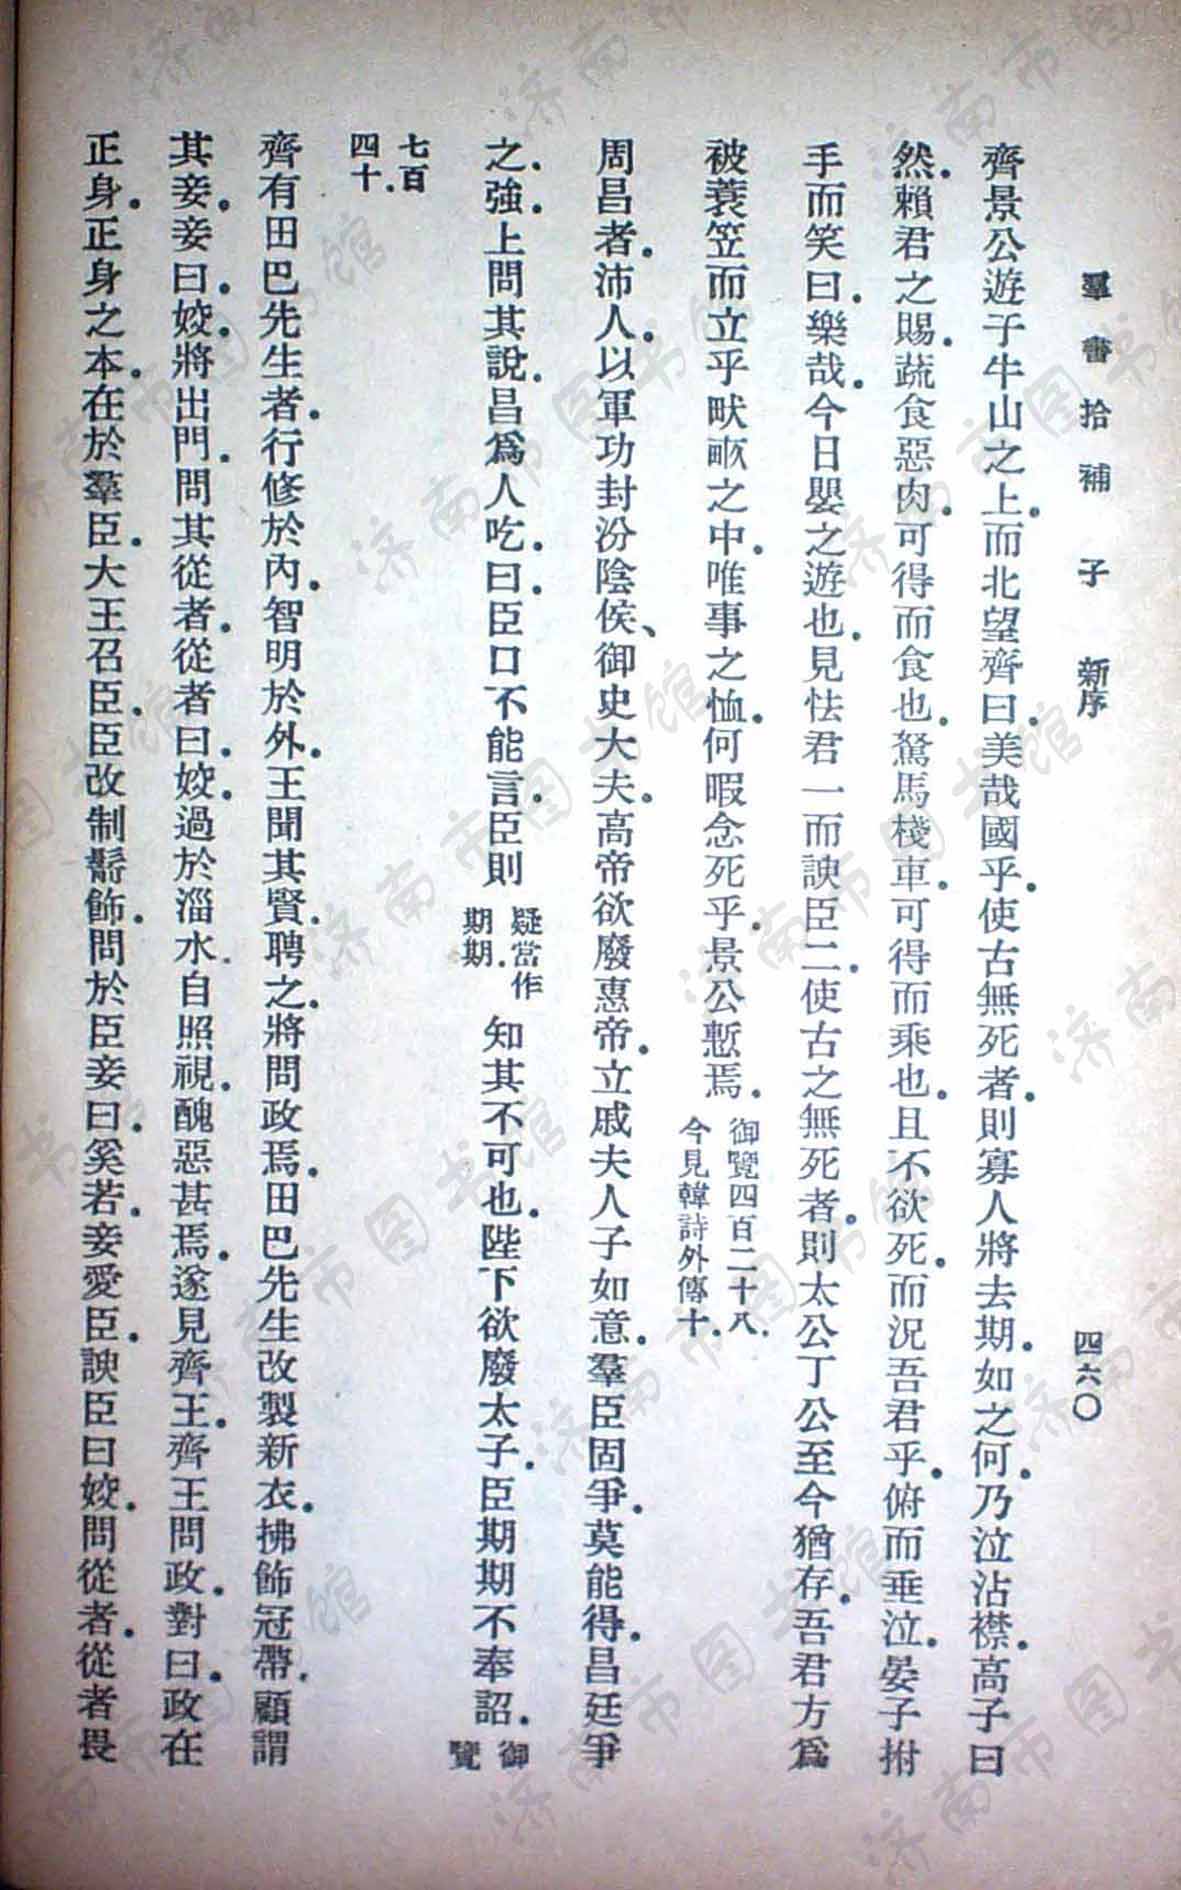 羣書拾補 子 新序 四六〇
齊景公遊于牛山之上.而北望齊曰.美哉國乎.使古無死者.則寡人將去期.如之何.乃泣沾襟.高子曰
然.賴君之賜.蔬食惡肉.可得而食也.駑馬棧車.可得而乘也.且不欲死.而況吾君乎.俯而垂泣.晏子拊
手而笑曰.樂哉.今日嬰之遊也.見怯君一而諛臣二.使古之無死者.則太公丁公至今猶存.吾君方爲
被蓑笠而立乎畎畝之中.唯事之恤.何暇念死乎.景公慙焉.御覽四百二十八.今見韓詩外傳十.
周昌者.沛人.以軍功封汾陰侯、御史大夫.高帝欲廢惠帝.立戚夫人子如意.羣臣固爭.莫能得.昌廷爭
之.強.上問其說.昌爲人吃.曰.臣口不能言.臣則疑當作期期.知其不可也.陛下欲廢太子.臣期期不奉詔.御覽
七百四十.
齊有田巴先生者.行修於內.智明於外.王聞其賢.聘之.將問政焉.田巴先生改製新衣.拂飾冠帶.顧謂
其妾.妾曰.姣.將出門.問其從者.從者曰.姣.過於淄水.自照視.醜惡甚焉.遂見齊王.齊王問政.對曰.政在
正身.正身之本.在於羣臣.大王召臣.臣改制鬋飾.問於臣妾曰.奚若.妾愛臣.諛臣曰.姣.問從者.從者畏
济南市图书馆